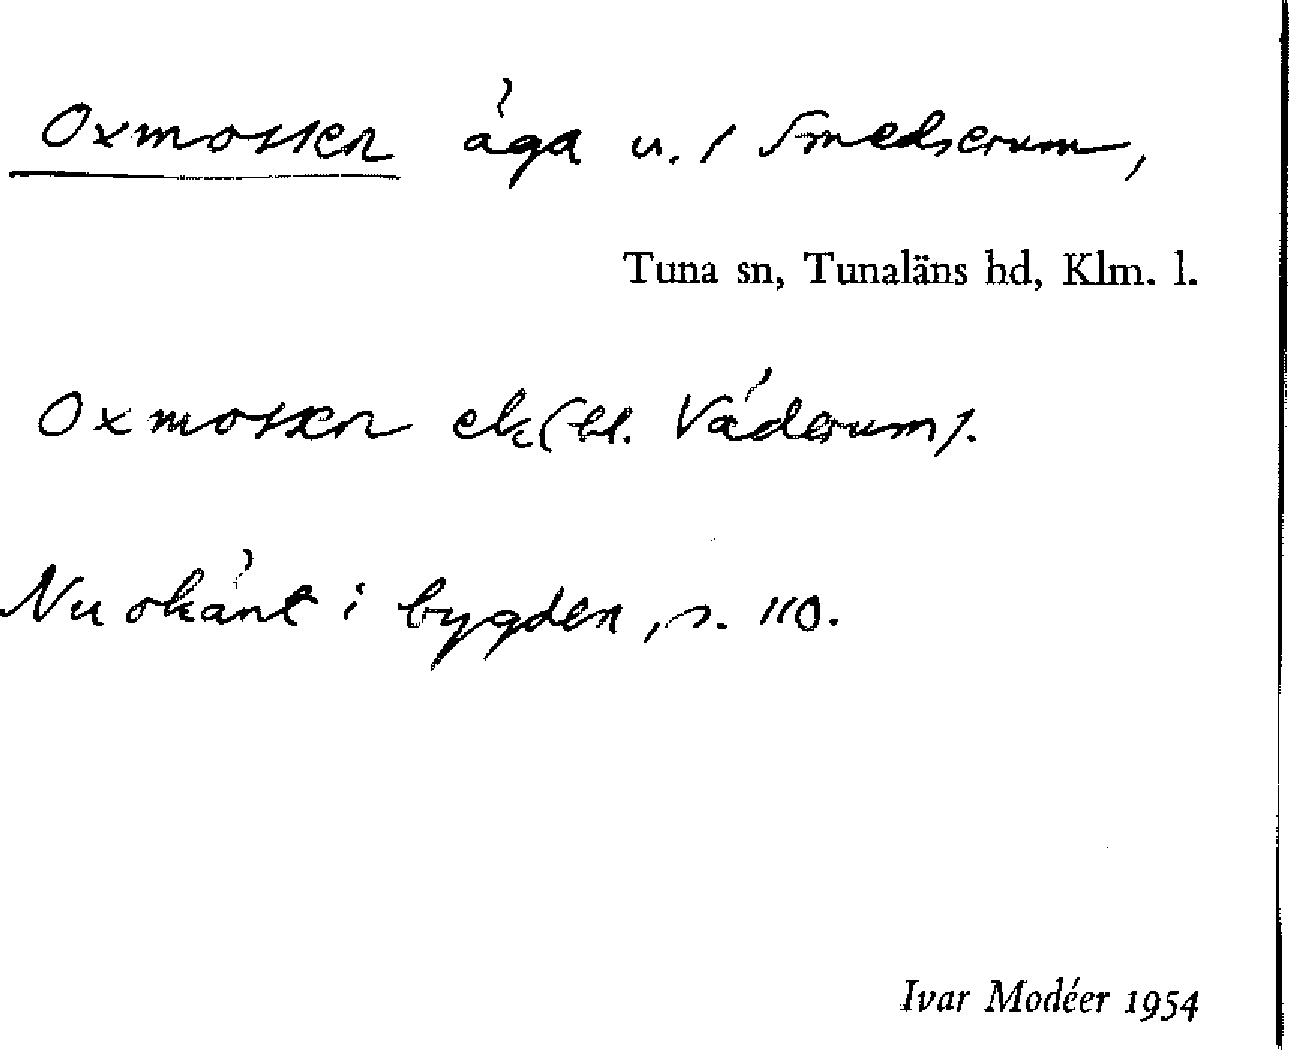 Oxmossen äga u. / Smedserum,
Tuna sn, Tunaläns hd, Klm. l.
Oxmossen ek (bl. Väderum).
Nu okänt i bygden, s. 110.
Ivar Modéer 1954